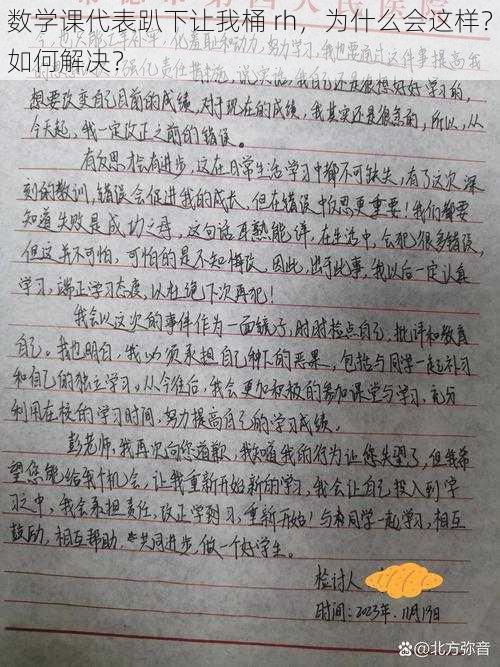 数学课代表趴下让我桶 rh，为什么会这样？
如何解决？
想要改变自己目前的成绩，对于现在的成绩，我其实还是很急的，所以，从
今天起，我一定改正之前的错误。
有反思才有进步，这在日常生活学习中都不可缺失，有了这次深
刻的教训，错误会促进我的成长，但在错误中反思更重要！我们都要
知道失败是成功之母，这句话耳熟能详，在生活中，会犯很多错误，
但这并不可怕，可怕的是不知悔改。因此，出于此事，我以后一定认真
学习，端正学习态度，以杜绝下次再犯！
我会以这次的事件作为一面镜子，时时检点自己，批评和教育
自己。我也明白，我必须承担自己种下的恶果，包括与同学一起补习
和自己的独立学习。从今往后，我会更加积极的参加课堂与学习，充分
利用在校的学习时间，努力提高自己的学习成绩。
彭老师，我再次向您道歉，我知道我的行为让您失望了，但我希
望您能给我个机会，让我重新开始新的学习，我会让自己投入到学
习之中，我会承担责任，改正学习，重新开始！与同学一起学习，相互
鼓励，相互帮助，共同进步，做一个好学生。
检讨人
时间：2023年.11月13日
@北方弥音